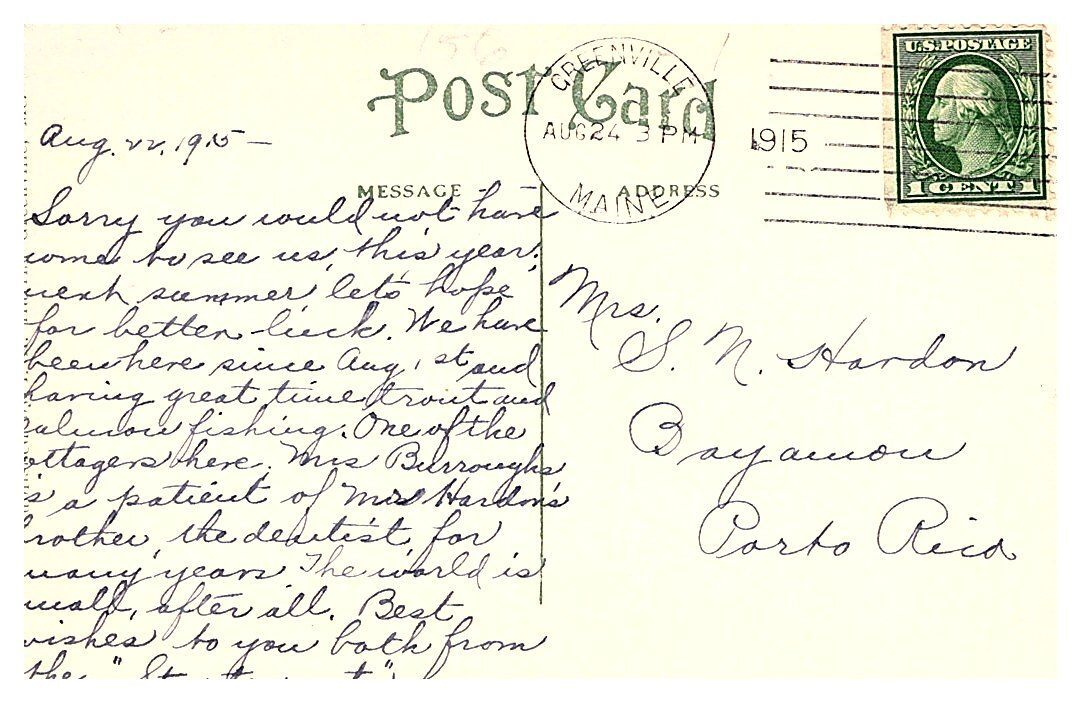 Post Card
GREENVILLE
AUG 24 3 PM
1915
MAINE
U.S. POSTAGE
1 CENT 1
MESSAGE
ADDRESS
Aug. 22, 1915 —
Sorry you could not have
come to see us, this year,
next summer let's hope
for better luck. We have
been here since Aug. 1st and
having great time trout and
salmon fishing. One of the
cottagers here, Mrs Burroughs
is a patient of Mrs Hardon's
brother, the dentist, for
many years. The world is
small, after all. Best
wishes to you both from
the "
Mrs.
S. N. Hardon
Bayamon
Porto Rico